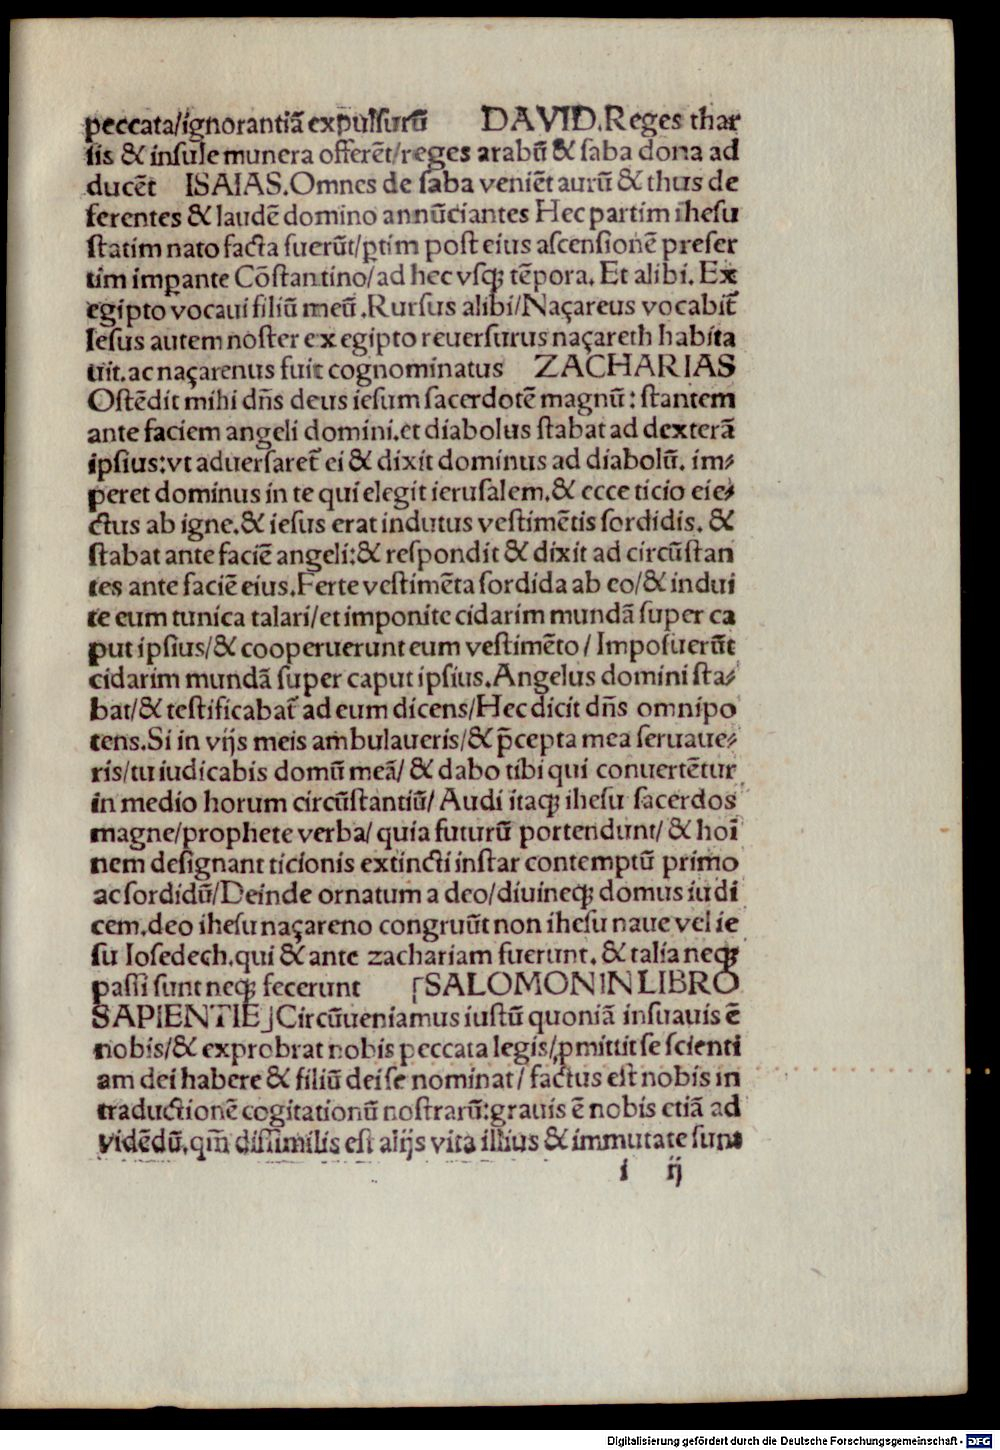 peccata/ignorantiã expulsurũ DAVID.Reges thar
sis & insule munera offerẽt/reges arabũ & saba dona ad
ducẽt ISAIAS.Omnes de saba veniẽt aurũ & thus de
ferentes & laudẽ domino annũciantes Hec partim ihesu
statim nato facta fuerũt/ꝑtim post eius ascensionẽ preser
tim imꝑante Cõstantino/ad hec vsqꝫ tẽpora. Et alibi. Ex
egipto vocaui filiũ meũ.Rursus alibi/Naçareus vocabit̃
Iesus autem noster ex egipto reuersurus naçareth habita
uit.ac naçarenus fuit cognominatus ZACHARIAS
Ostẽdit mihi dñs deus iesum sacerdotẽ magnũ: stantem
ante faciem angeli domini.et diabolus stabat ad dexterã
ipsius:vt aduersaret̃ ei & dixit dominus ad diabolũ. im⸗
peret dominus in te qui elegit ierusalem.& ecce ticio eie⸗
ctus ab igne.& iesus erat indutus vestimẽtis sordidis. &
stabat ante faciẽ angeli:& respondit & dixit ad circũstan
tes ante faciẽ eius.Ferte vestimẽta sordida ab eo/& indui
te eum tunica talari/et imponite cidarim mundã super ca
put ipsius/& cooperuerunt eum vestimẽto/ Imposuerũt
cidarim mundã super caput ipsius.Angelus domini sta⸗
bat/& testificabat̃ ad eum dicens/Hec dicit dñs omnipo
tens.Si in vijs meis ambulaueris/& p̃cepta mea seruaue⸗
ris/tu iudicabis domũ meã/ & dabo tibi qui conuertẽtur
in medio horum circũstantiũ/ Audi itaqꝫ ihesu sacerdos
magne/prophete verba/ quia futurũ portendunt/ & hoĩ
nem designant ticionis extincti instar contemptũ primo
ac sordidũ/Deinde ornatum a deo/diuineqꝫ domus iudi
cem.deo ihesu naçareno congruũt non ihesu naue vel ie
su Iosedech.qui & ante zachariam fuerunt. & talia neqꝫ
passi sunt neqꝫ fecerunt ⌈SALOMON IN LIBRO
SAPIENTIE⌋Circũueniamus iustũ quoniã insuauis ẽ
nobis/& exprobrat nobis peccata legis/ꝓmittit se scienti
am dei habere & filiũ dei se nominat/ factus est nobis in
traductionẽ cogitationũ nostrarũ:grauis ẽ nobis etiã ad
vidẽdũ.qm̃ dissimilis est alijs vita illius & immutate sunt
i ij
Digitalisierung gefördert durch die Deutsche Forschungsgemeinschaft - DFG